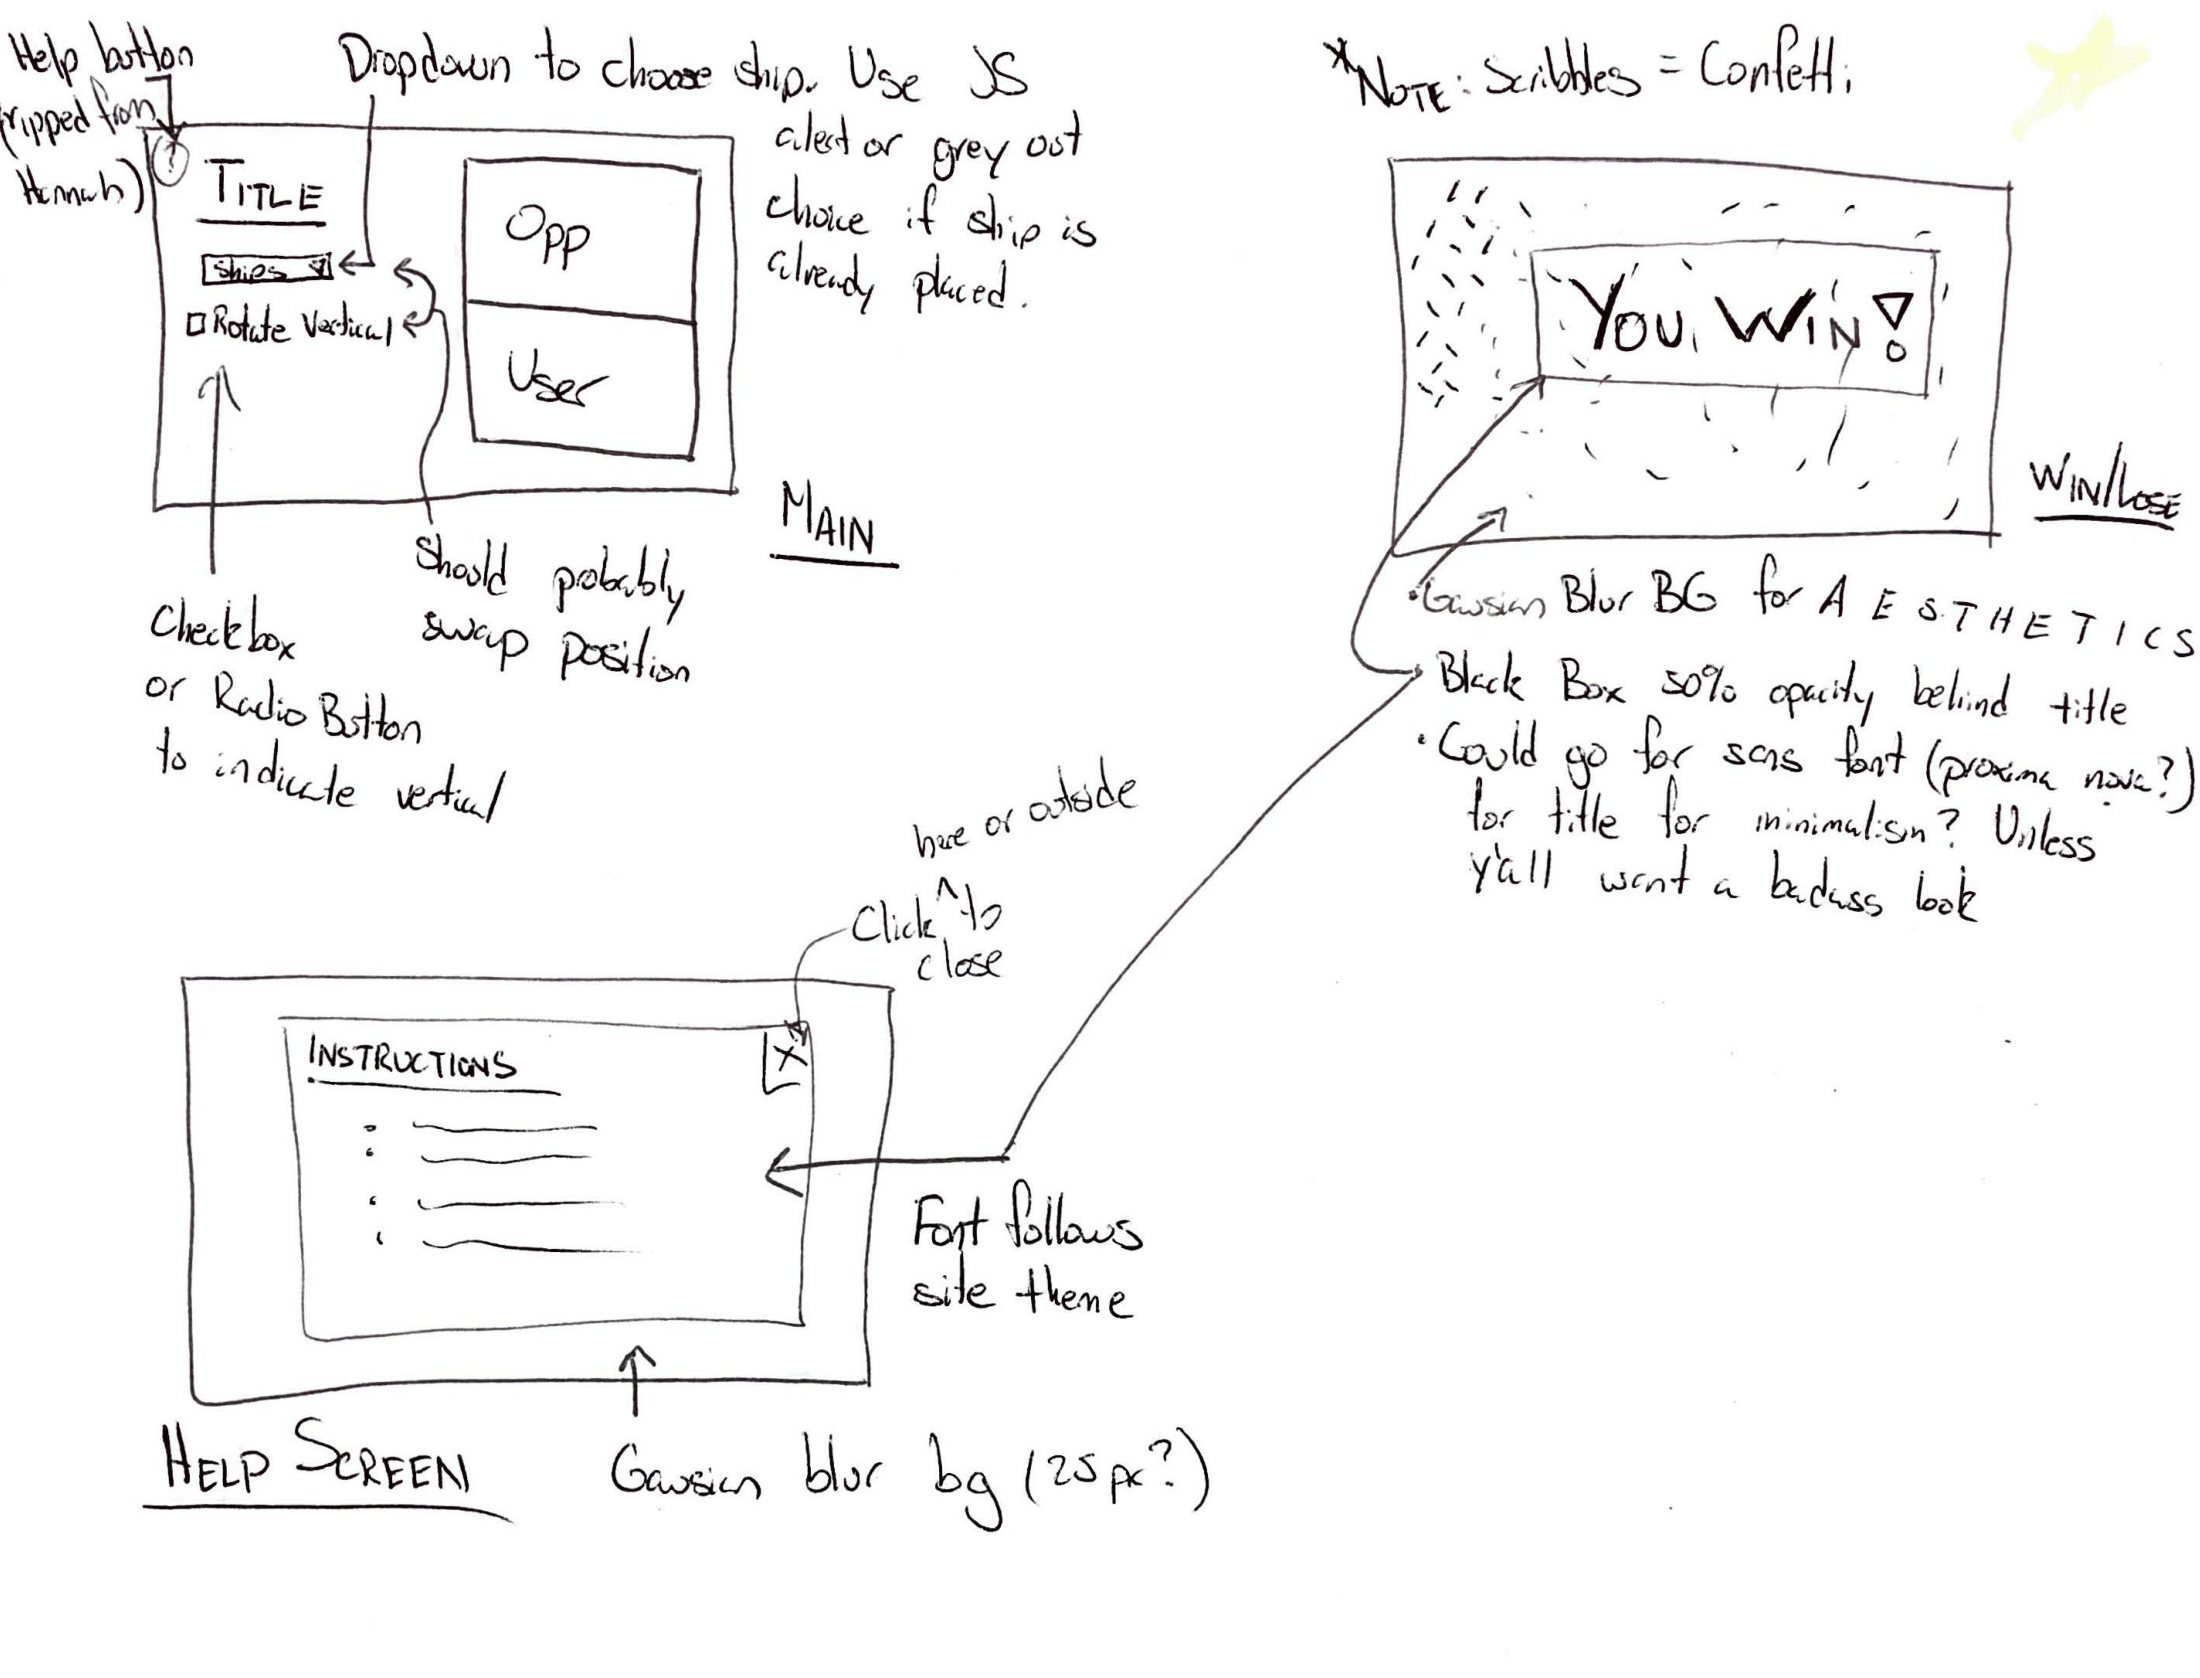 Help button
(ripped from
Hannah)
Dropdown to choose ship. Use JS
alert or grey out
choice if ship is
already placed.
?
TITLE
Ships
Rotate Vertical
Opp
User
MAIN
Should probably
swap position
Checkbox
or Radio Button
to indicate vertical
*NOTE: Scribbles = Confetti
YOU WIN!
WIN/LOSE
• Gausian Blur BG for A E S T H E T I C S
• Black Box 50% opacity behind title
• Could go for sans font (proxima nova?)
for title for minimalism? Unless
y'all want a badass look
here or outside
Click ^ to
close
INSTRUCTIONS
X
Font follows
site theme
HELP SCREEN
Gausian blur bg (25px?)